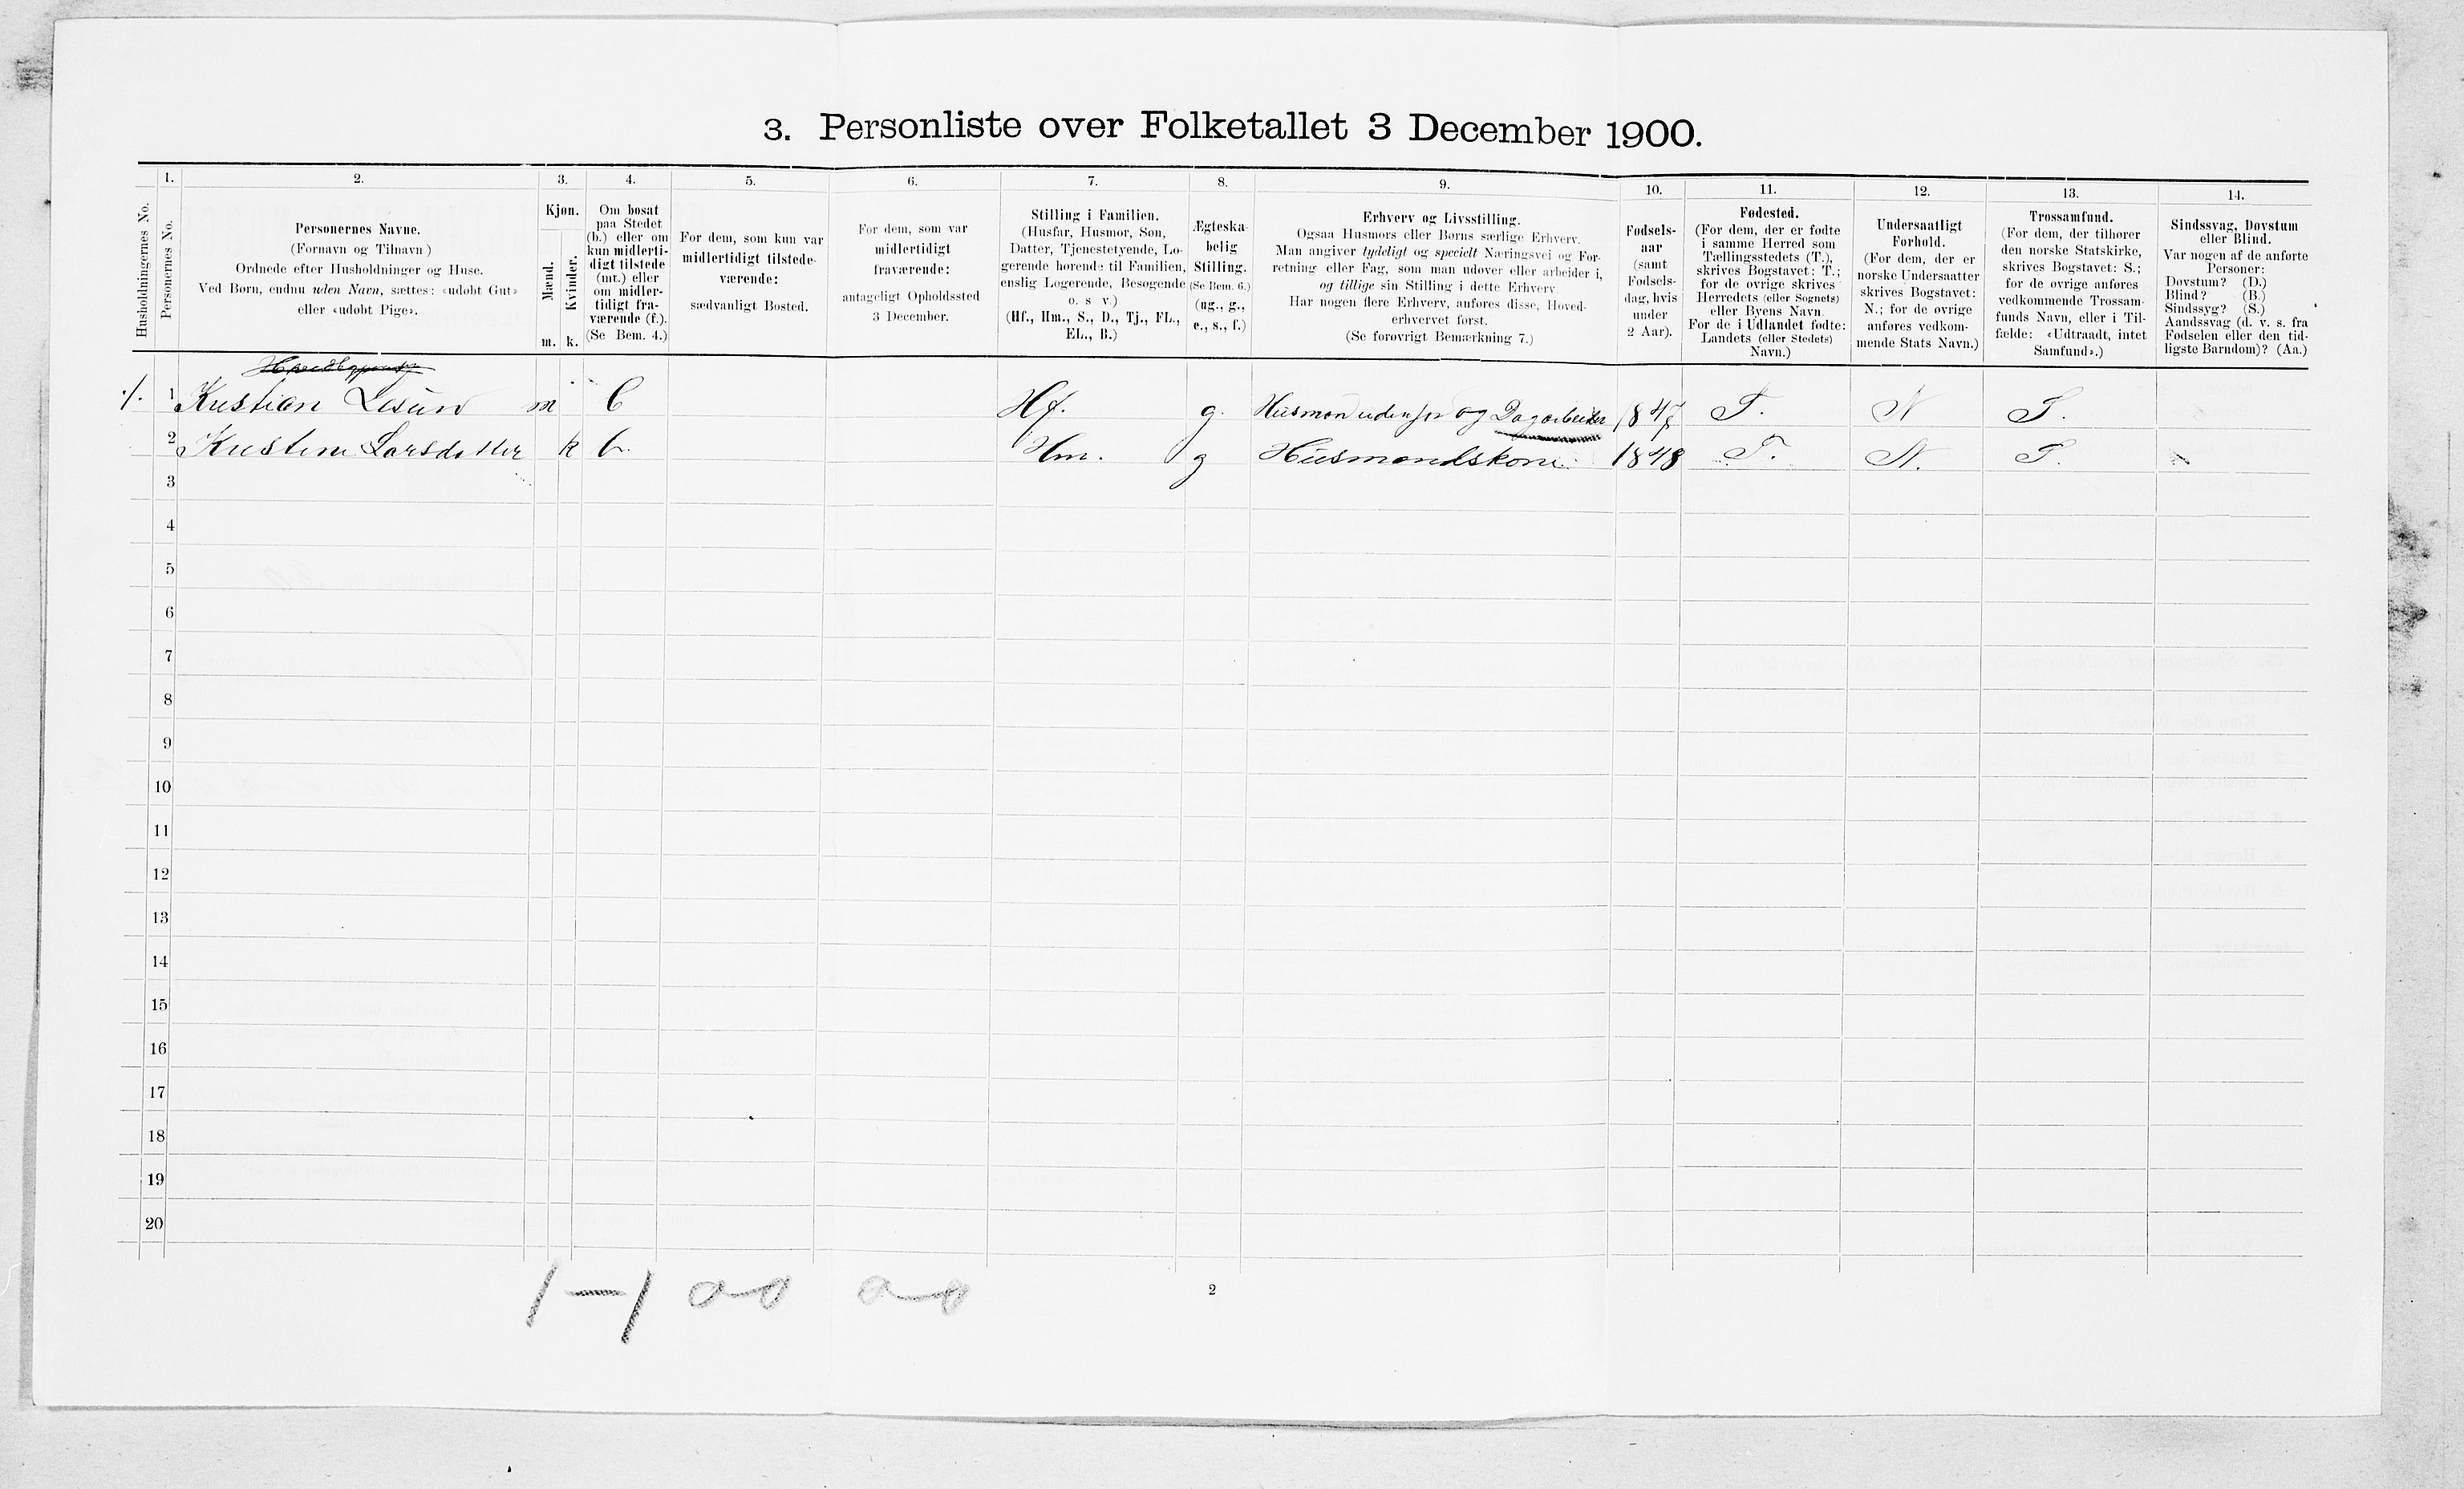 3. Personliste over Folketallet 3 December 1900.
Husholdningernes No.
1.
Personernes No.
2.
Personernes Navne.
(Fornavn og Tilnavn)
Ordnede efter Husholdninger og Huse.
Ved Børn, endnu uden Navn, sættes: «udøbt Gut»
eller «udøbt Pige».
3.
Kjøn.
Mænd.
Kvinder.
m. k.
4.
Om bosat
paa Stedet
(b.) eller om
kun midlerti-
digt tilstede
(mt.) eller
om midler-
tidigt fra-
værende (f.).
(Se Bem. 4.)
5.
For dem, som kun var
midlertidigt tilstede-
værende:
sædvanligt Bosted.
6.
For dem, som var
midlertidigt
fraværende:
antageligt Opholdssted
3 December.
7.
Stilling i Familien.
(Husfar, Husmor, Søn,
Datter, Tjenestetyende, Lo-
gerende hørende til Familien,
enslig Logerende, Besøgende
o. s. v.)
(Hf., Hm., S., D., Tj., FL.,
EL., B.)
8.
Ægteska-
belig
Stilling.
(Se Bem. 6.)
(ug., g.,
e., s., f.)
9.
Erhverv og Livsstilling.
Ogsaa Husmors eller Børns særlige Erhverv.
Man angiver tydeligt og specielt Næringsvei og For-
retning eller Fag, som man udøver eller arbeider i,
og tillige sin Stilling i dette Erhverv
Har nogen flere Erhverv, anføres disse, Hoved-
erhvervet først.
(Se forøvrigt Bemærkning 7.)
10.
Fødsels-
aar
(samt
Fødsels-
dag, hvis
under
2 Aar).
11.
Fødested.
(For dem, der er fødte
i samme Herred som
Tællingsstedets (T.),
skrives Bogstavet: T.;
for de øvrige skrives
Herredets (eller Sognets)
eller Byens Navn.
For de i Udlandet fødte:
Landets (eller Stedets)
Navn.)
12.
Undersaatligt
Forhold.
(For dem, der er
norske Undersaatter
skrives Bogstavet:
N.; for de øvrige
anføres vedkom-
mende Stats Navn.)
13.
Trossamfund.
(For dem, der tilhører
den norske Statskirke,
skrives Bogstavet: S.;
for de øvrige anføres
vedkommende Trossam-
funds Navn, eller i Til-
fælde: «Udtraadt, intet
Samfund».)
14.
Sindssvag, Døvstum
eller Blind.
Var nogen af de anførte
Personer:
Døvstum? (D.)
Blind? (B.)
Sindssyg? (S.)
Aandssvag (d. v. s. fra
Fødselen eller den tid-
ligste Barndom)? (Aa.)
1 Kristian m b Hf. g. Husmand udenfor og Dagarbeider 1847 T. N S.
2 Kristine Larsdatter k b. Hm. g Husmandskone 1848 T. N. S.
3
4
5
6
7
8
9
10
11
12
13
14
15
16
17
18
19
20
1–1 0–0 0–0
2